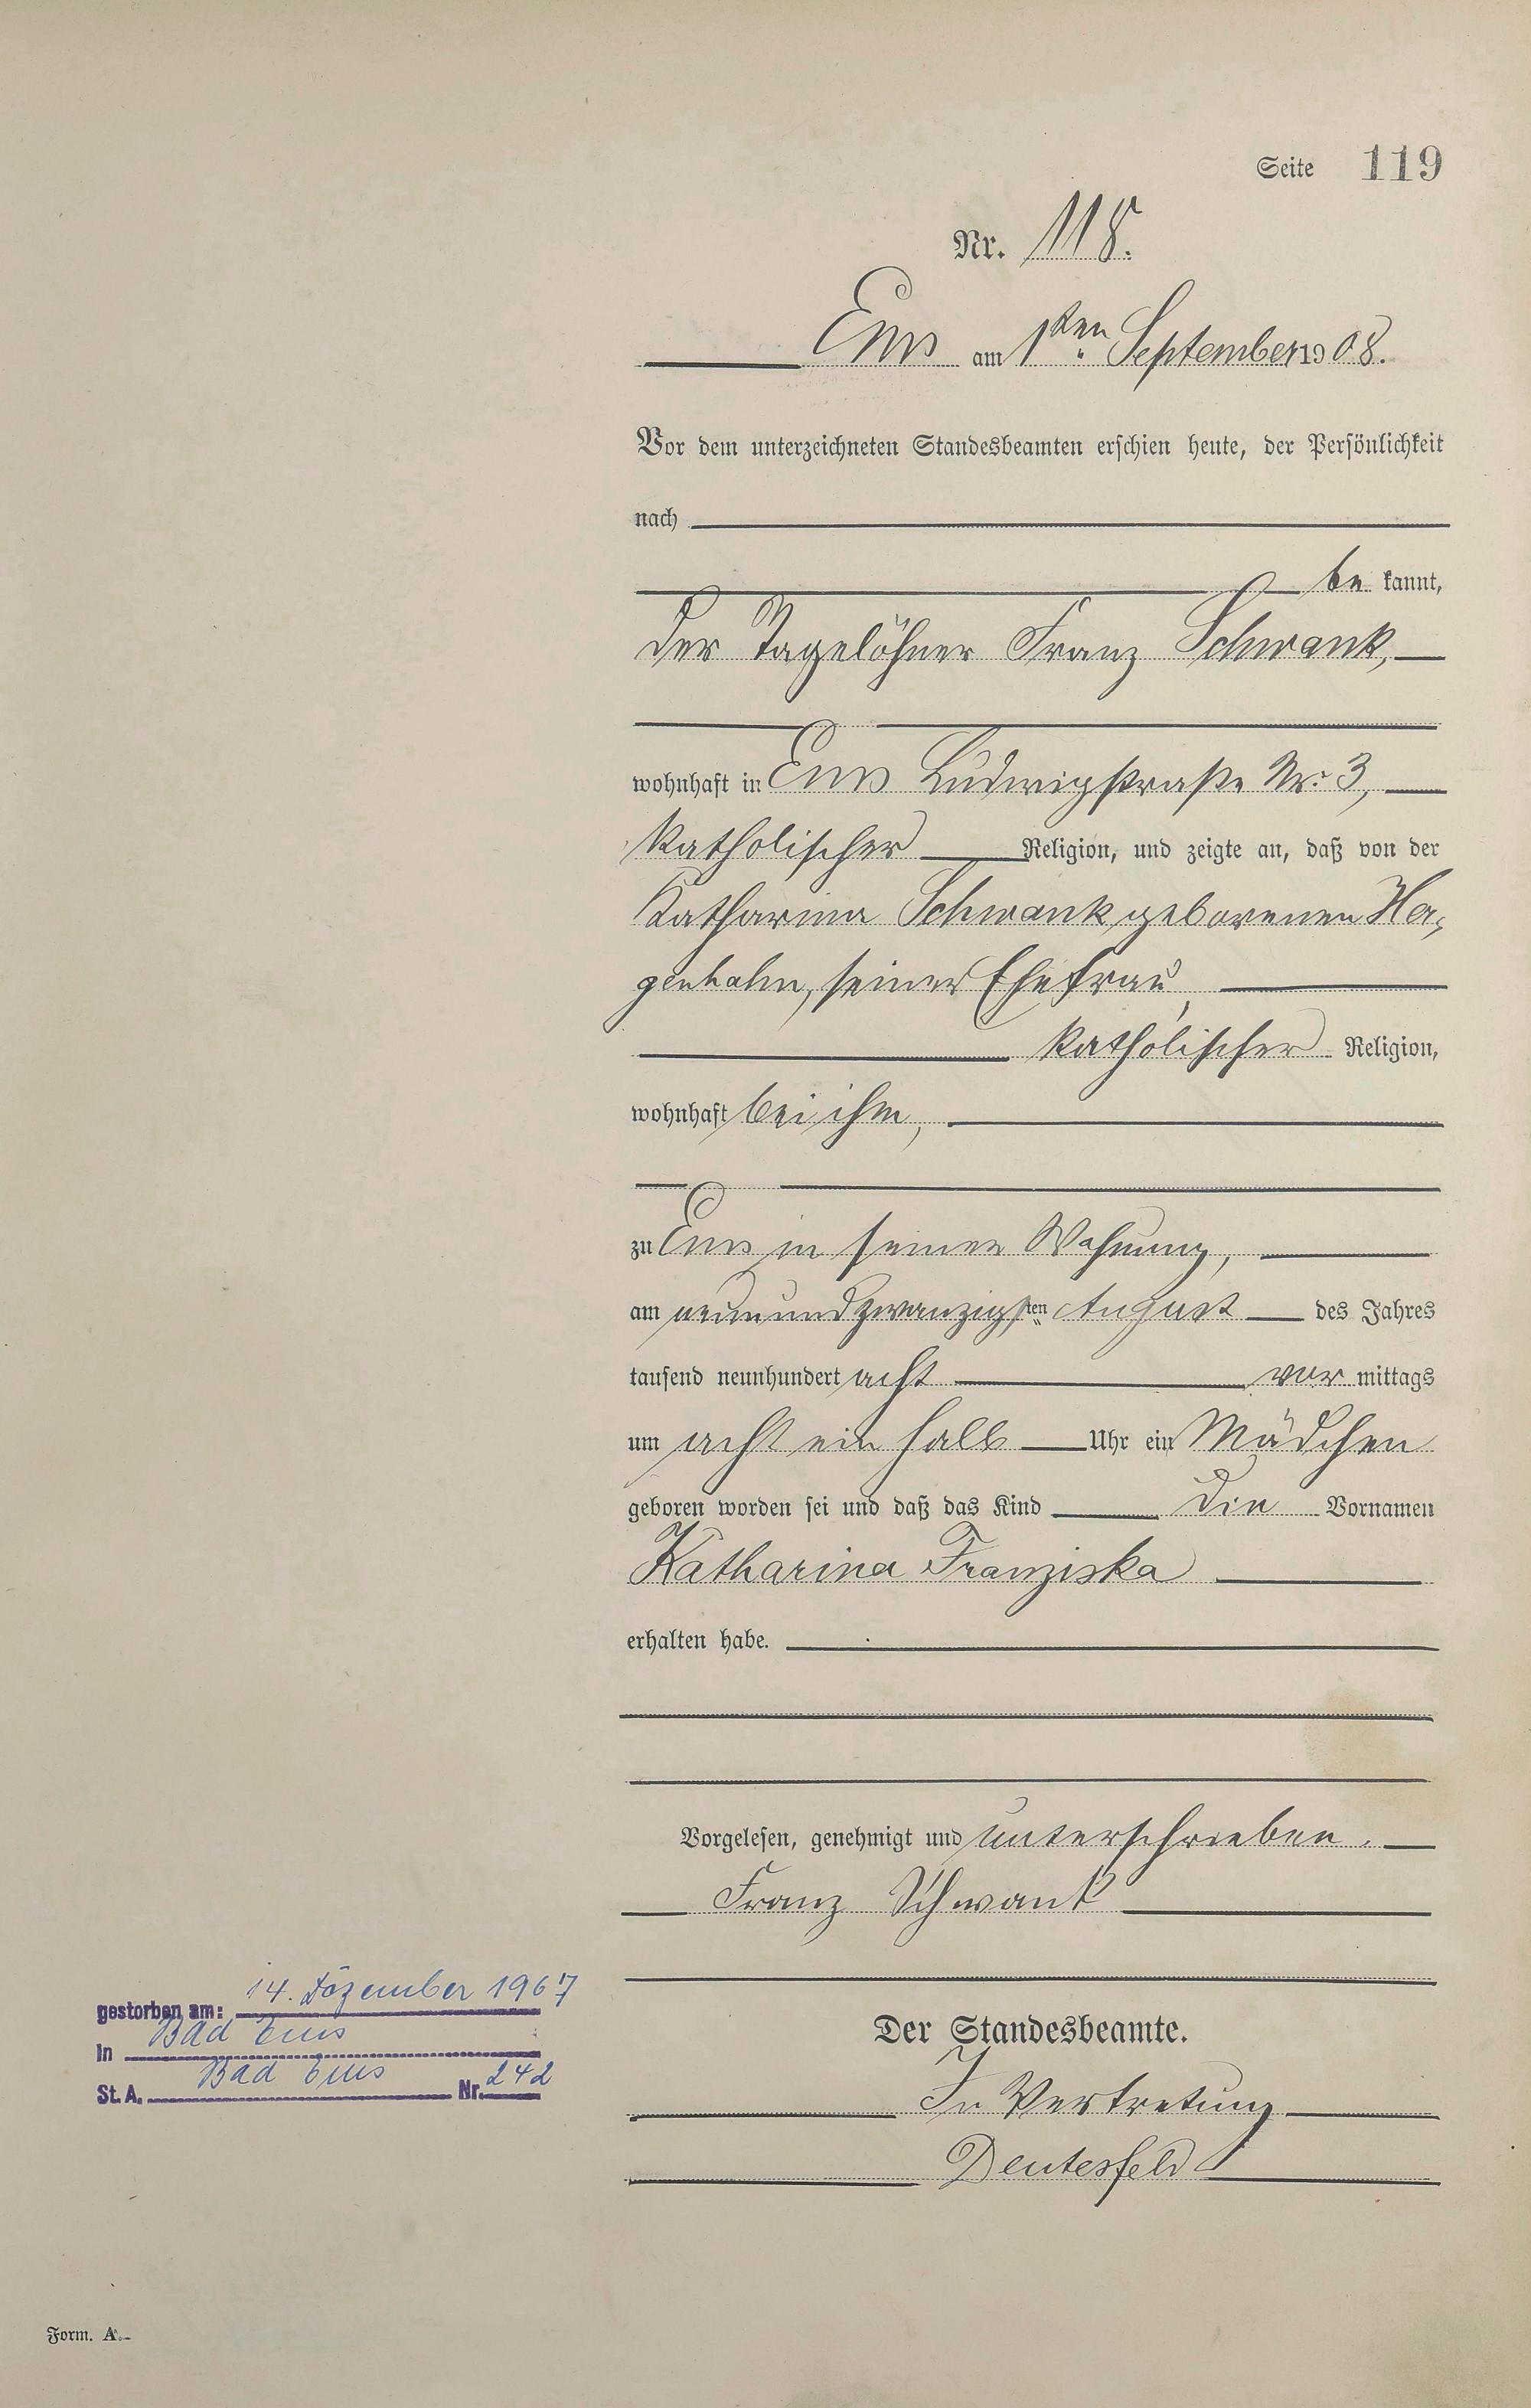 Seite 119
Nr. 118.
Ems am 1ten September 1908.
Vor dem unterzeichneten Standesbeamten erschien heute, der Persönlichkeit
nach
be kannt,
der Tagelöhner Franz Schwank,
wohnhaft in Ems Ludwigstraße Nr. 3,
katholischer Religion, und zeigte an, daß von der
Katharina Schwank geborenen Ha-
genhahn, seiner Ehefrau,
katholischer Religion,
wohnhaft bei ihm,
zu Ems in seiner Wohnung,
am neunundzwanzigsten August des Jahres
tausend neunhundert acht vor mittags
um acht ein halb Uhr ein Mädchen
geboren worden sei und daß das Kind die Vornamen
Katharina Franziska
erhalten habe.
Vorgelesen, genehmigt und unterschrieben.
Franz Schwank
Der Standesbeamte.
In Vertretung
Deutesfeld
gestorben am: 14. Dezember 1967
In Bad Ems
St. A. Bad Ems Nr. 242
Form. A.